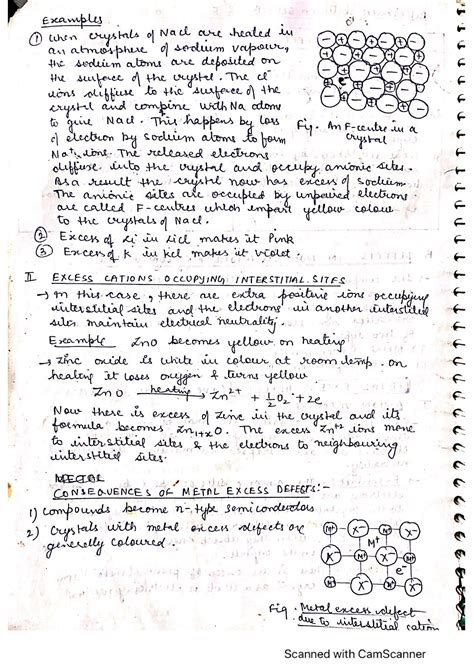 Examples
① When crystals of NaCl are heated in
an atmosphere of sodium vapour,
the sodium atoms are deposited on
the surface of the crystal. The Cl⁻
ions diffuse to the surface of the
crystal and combine with Na atoms
to give NaCl. This happens by loss
of electron by sodium atoms to form
Na⁺ ions. The released electrons
diffuse into the crystal and occupy anionic sites.
As a result the crystal now has excess of sodium
The anionic sites are occupied by unpaired electrons
are called F-centres which impart yellow colour
to the crystals of NaCl.
Fig. An F-centre in a
crystal
② Excess of Li in LiCl makes it Pink
③ Excess of K in KCl makes it violet.
II EXCESS CATIONS OCCUPYING INTERSTITIAL SITES
→ In this case, there are extra positive ions occupying
interstitial sites and the electrons in another interstitial
sites maintain electrical neutrality.
Example ZnO becomes yellow on heating
→ Zinc oxide is white in colour at room temp. on
heating it loses oxygen & turns yellow
ZnO heating → Zn²⁺ + ½O₂ + 2e
Now there is excess of zinc in the crystal and its
formula becomes Zn₁₊ₓO. The excess Zn⁺² ions move
to interstitial sites & the electrons to neighbouring
interstitial sites.
CONSEQUENCES OF METAL EXCESS DEFECTS:-
1) compounds become n-type semiconductors
2) Crystals with metal excess defects are
generally coloured.
M⁺ X⁻ M⁺ X⁻
M⁺
X⁻ M⁺ X⁻ M⁺
e⁻
M⁺ X⁻ M⁺ X⁻
Fig. Metal excess defect
due to interstitial cation
Scanned with CamScanner